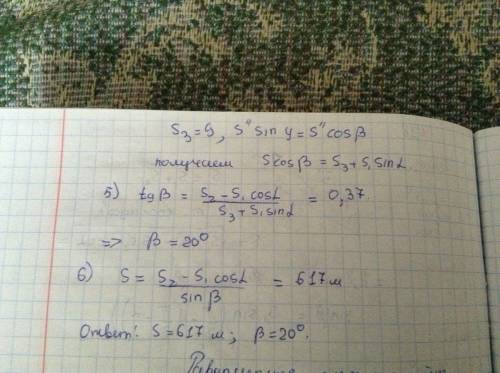 S₃ = y, S'' sin y = S'' cosβ
получаем S cosβ = S₃ + S₁ sinα
5) tgβ = (S₂ - S₁ cosα) / (S₃ + S₁ sinα) = 0,37
=> β = 20°
6) S = (S₂ - S₁ cosα) / sinβ = 617 м
Ответ: S = 617 м; β = 20°.